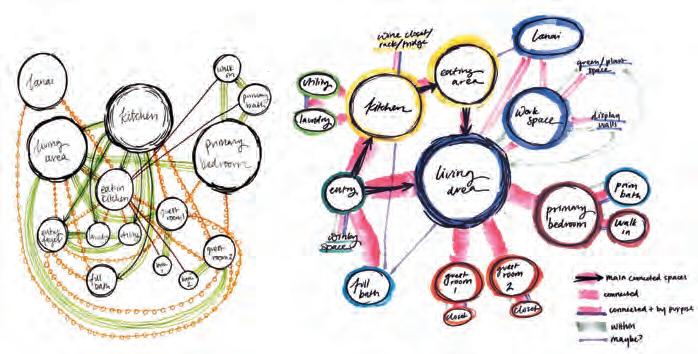 lanai
walk
in
primary
bath
kitchen
living
area
primary
bedroom
eat in
kitchen
guest
room 1
entry
laundry
utility
guest
room 2
full
bath
wine closet/
rack/fridge
eating
area
lanai
green/plant
space
utility
kitchen
laundry
work
space
display
walls
entry
living
area
prim
bath
primary
bedroom
walk
in
space
full
bath
guest
room
1
guest
room
2
closet
closet
main connected spaces
connected
connected + by purpose
within
maybe?